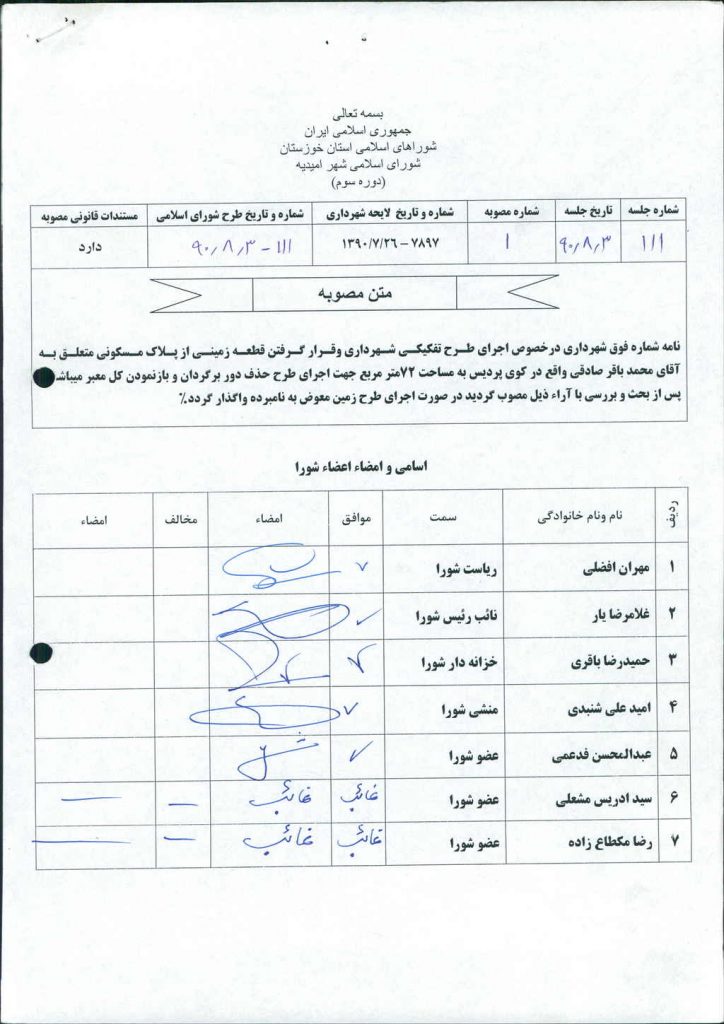 بسمه تعالی
جمهوری اسلامی ایران
شوراهای اسلامی استان خوزستان
شورای اسلامی شهر امیدیه
(دوره سوم)
شماره جلسه تاریخ جلسه شماره مصوبه شماره و تاریخ لایحه شهرداری شماره و تاریخ طرح شورای اسلامی مستندات قانونی مصوبه
۱۱۱ ۹۰٫۸٫۳ ۱ ۷۸۹۷ – ۱۳۹۰/۷/۲۶ ۱۱۱ – ۹۰٫۸٫۳ دارد
متن مصوبه
نامه شماره فوق شهرداری درخصوص اجرای طرح تفکیکی شهرداری وقرار گرفتن قطعه زمینی از پلاک مسکونی متعلق به
آقای محمد باقر صادقی واقع در کوی پردیس به مساحت ۷۲متر مربع جهت اجرای طرح حذف دور برگردان و بازنمودن کل معبر میباشد
پس از بحث و بررسی با آراء ذیل مصوب گردید در صورت اجرای طرح زمین معوض به نامبرده واگذار گردد٪
اسامی و امضاء اعضاء شورا
ردیف نام ونام خانوادگی سمت موافق امضاء مخالف امضاء
۱ مهران افضلی ریاست شورا ✓
۲ غلامرضا یار نائب رئیس شورا ✓
۳ حمیدرضا باقری خزانه دار شورا ✓
۴ امید علی شنبدی منشی شورا ✓
۵ عبدالمحسن فدعمی عضو شورا ✓
۶ سید ادریس مشعلی عضو شورا غائب غائب — —
۷ رضا مکطاع زاده عضو شورا غائب غائب — —